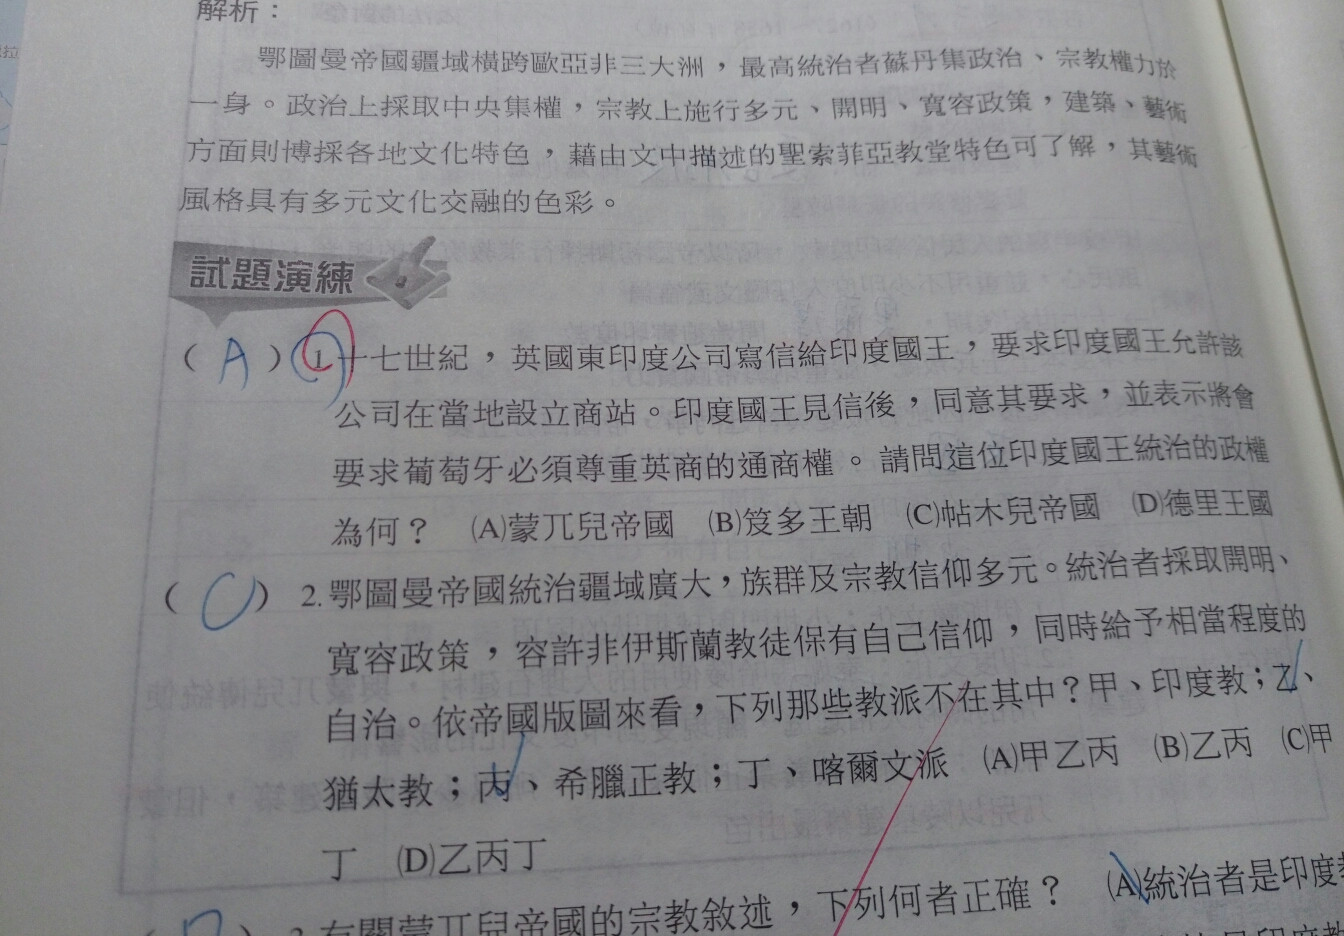 解析：
鄂圖曼帝國疆域橫跨歐亞非三大洲，最高統治者蘇丹集政治、宗教權力於
一身。政治上採取中央集權，宗教上施行多元、開明、寬容政策，建築、藝術
方面則博採各地文化特色，藉由文中描述的聖索菲亞教堂特色可了解，其藝術
風格具有多元文化交融的色彩。
試題演練
（A）1.十七世紀，英國東印度公司寫信給印度國王，要求印度國王允許該
公司在當地設立商站。印度國王見信後，同意其要求，並表示將會
要求葡萄牙必須尊重英商的通商權。請問這位印度國王統治的政權
為何？ (A)蒙兀兒帝國 (B)笈多王朝 (C)帖木兒帝國 (D)德里王國
（C）2.鄂圖曼帝國統治疆域廣大，族群及宗教信仰多元。統治者採取開明、
寬容政策，容許非伊斯蘭教徒保有自己信仰，同時給予相當程度的
自治。依帝國版圖來看，下列那些教派不在其中？甲、印度教；乙、
猶太教；丙、希臘正教；丁、喀爾文派 (A)甲乙丙 (B)乙丙 (C)甲
丁 (D)乙丙丁
3.有關蒙兀兒帝國的宗教敘述，下列何者正確？ (A)統治者是印度教